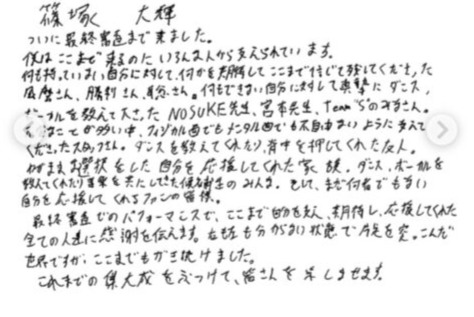 篠塚 大輝
ついに最終審査まで来ました。
僕はここまで来るのにいろんな人から支えられています。
何も持っていない自分に対して、何かを期待してここまで信じて残してくださった
さん、勝利さん、さん。何もできない自分に対して真摯にダンス、
ボーカルを教えて下さった NOSUKE先生、宮本先生、Team'Sのみなさん。
なことが多い中、フィジカル面でもメンタル面でも不自由ないように支えて
くださったスタッフさん。ダンスを教えてくれたり、背中を押してくれた友人。
わがままな選択をした自分を応援してくれた家族。ダンス、ボーカルを
教えてくれたり苦楽を共にしてきた候補生のみんな。そして、まだ何者でもない
自分を応援してくれるファンの皆様。
最終審査でのパフォーマンスで、ここまで自分を支え、期待し、応援してくれた
全ての人達に感謝を伝えます。右も左も分からない状態で足を突っこんだ
世界ですが、ここまでもがき続けました。
これまでの集大成をぶつけて、皆さんを楽しませます。